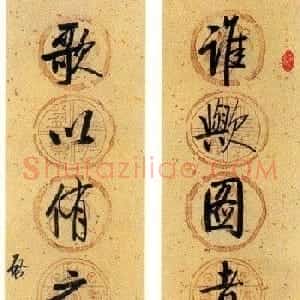 誰歟圖
歌以侑
Shufaziliao.com